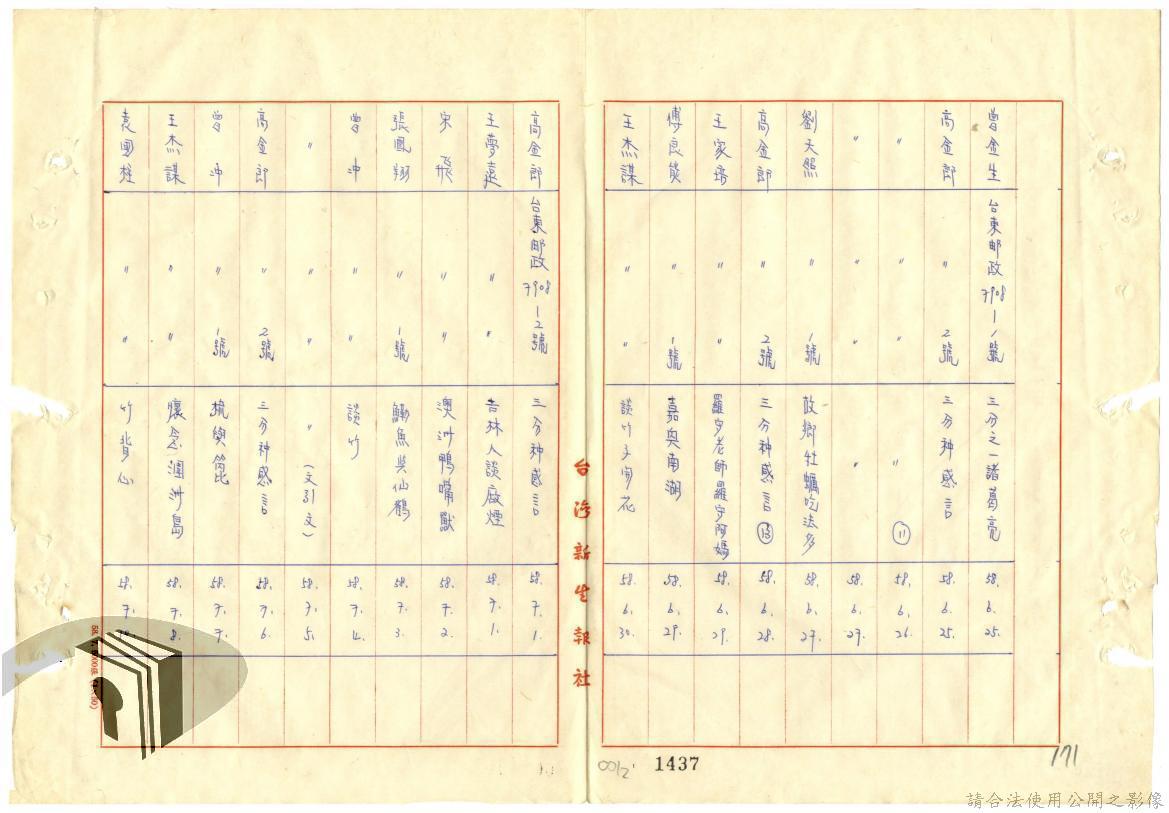 曾金生 台東邮政7908-1號 三分之一諸葛亮 58. 6. 25.
高金郎 〃 2號 三分种感言 58. 6. 25.
〃 〃 〃 〃 ⑪ 58. 6. 26.
〃 〃 〃 〃 58. 6. 27.
劉天照 〃 1號 故鄉牡蠣吃法多 58. 6. 27.
高金郎 〃 2號 三分种感言 ⑬ 58. 6. 28.
王家 〃 〃 羅宇老師羅宇阿媽 58. 6. 29.
傅良 〃 1號 嘉奥南湖 58. 6. 29.
王杰謀 〃 〃 談竹子開花 58. 6. 30.
台灣新生報社
高金郎 台東邮政7908-2號 三分种感言 58. 7. 1.
王夢遠 〃 〃 吉林人談 煙 58. 7. 1.
宋飛 〃 〃 澳洲鴨嘴獸 58. 7. 2.
張鳳翔 〃 1號 魚與仙鶴 58. 7. 3.
曾冲 〃 〃 談竹 58. 7. 4.
〃 〃 〃 〃(文引文) 58. 7. 5.
高金郎 〃 2號 三分种感言 58. 7. 6.
曾冲 〃 1號 梳與篦 58. 7. 7.
王杰謀 〃 〃 懷念 洲島 58. 7. 8.
袁國柱 〃 〃 竹背心 58. 7.
1437
171
請合法使用公開之影像